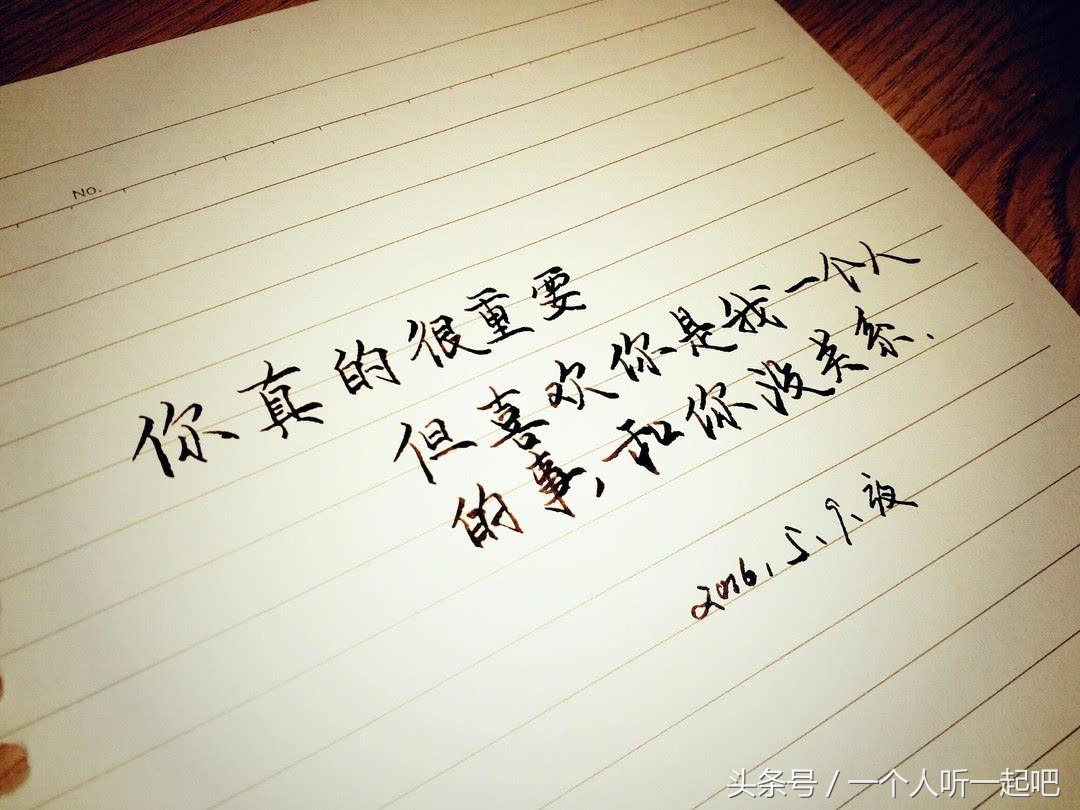 NO.
你真的很重要
但喜欢你是我一个人
的事,和你没关系.
2016.5.9.夜
头条号 / 一个人听一起吧